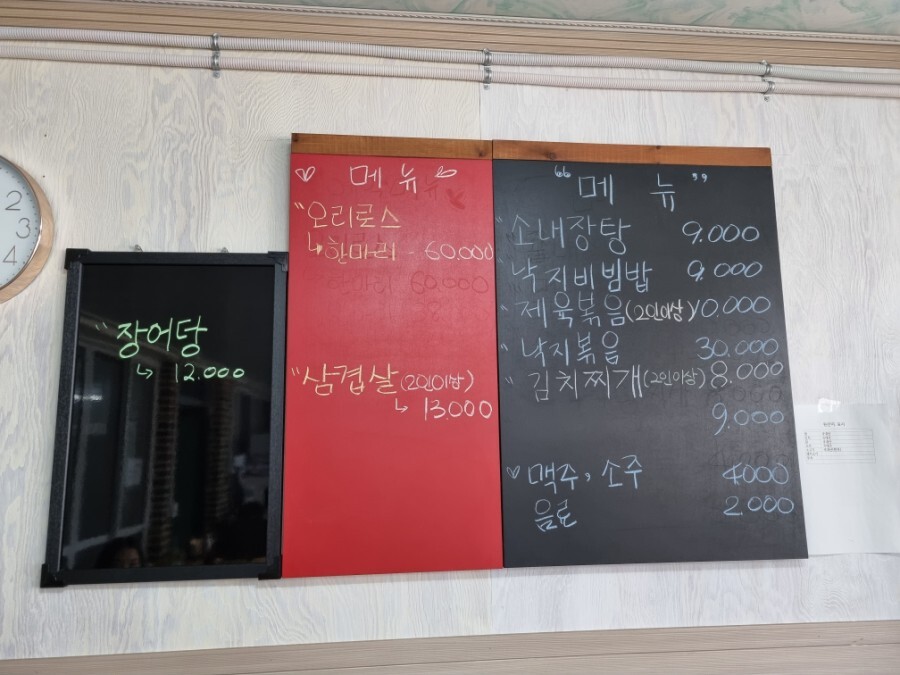 2
3
4
장어탕
↳ 12.000
♡ 메뉴
"오리로스
↳ 한마리 - 60.000
한마리 60.000
"삼겹살 (2인이상)
↳ 13.000
"메 뉴"
"소내장탕 9.000
낙지비빔밥 9.000
"제육볶음(2인이상) 10.000
"낙지볶음 30.000
"김치찌개(2인이상) 8.000
9.000
♡ 맥주, 소주 4000
음료 2.000